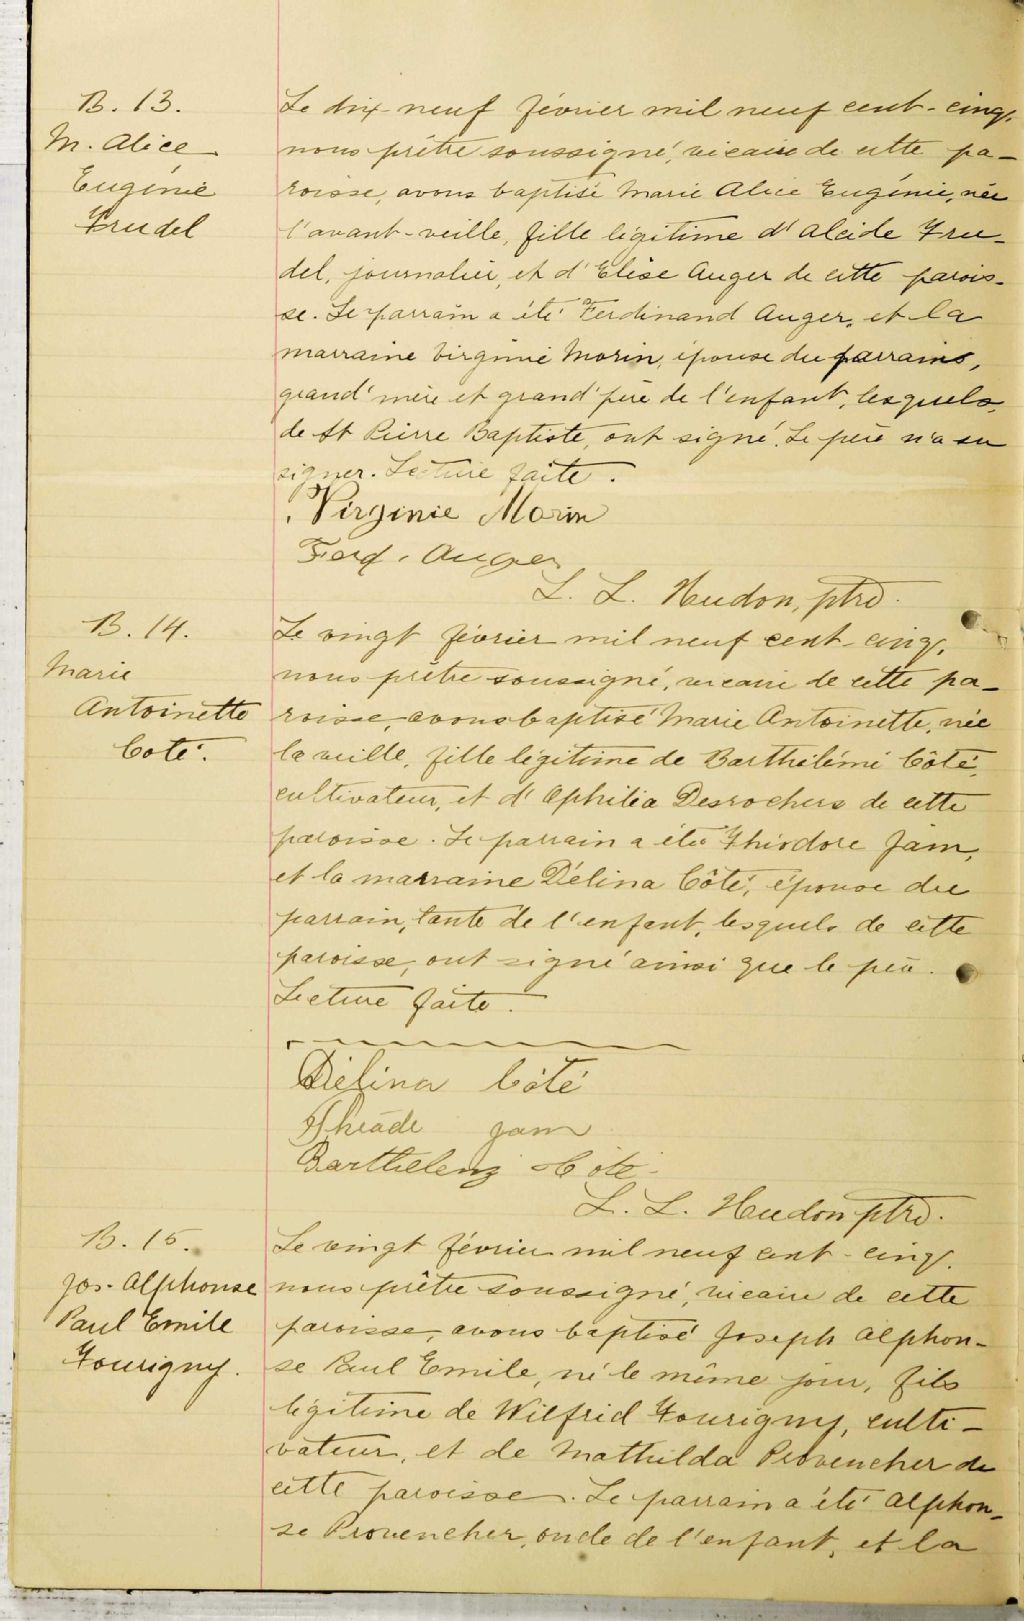 B. 13.
M. Alice
Eugénie
Trudel
Le dix-neuf février mil neuf cent-cinq,
nous prêtre soussigné, vicaire de cette pa-
roisse, avons baptisé Marie Alice Eugénie, née
l'avant-veille, fille légitime d'Alcide Tru-
del, journalier, et d'Elise Auger de cette parois-
se. Le parrain a été Ferdinand Auger, et la
marraine Virginie Morin, épouse du parrains,
grand'mère et grand'père de l'enfant, lesquels,
de St Pierre Baptiste, ont signé. Le père n'a su
signer. Lecture faite.
Virginie Morin
Ferd. Auger
L. L. Hudon, ptre.
B. 14.
Marie
Antoinette
Coté.
Le vingt février mil neuf cent-cinq,
nous prêtre soussigné, vicaire de cette pa-
roisse, avons baptisé Marie Antoinette, née
la veille, fille légitime de Barthélémi Côté,
cultivateur, et d'Ophilia Desrochers de cette
paroisse. Le parrain a été Théodore Jam,
et la marraine Délina Côté, épouse du
parrain, tante de l'enfant, lesquels de cette
paroisse, ont signé ainsi que le père.
Lecture faite.
Délina Côté
Jam
Coté
L. L. Hudon ptre.
B. 15.
Jos. Alphonse
Paul Emile
Tourigny.
Le vingt février mil neuf cent-cinq,
nous prêtre soussigné, vicaire de cette
paroisse, avons baptisé Joseph Alphon-
se Paul Emile, né le même jour, fils
légitime de Wilfrid Tourigny, culti-
vateur, et de Mathilda Provencher de
cette paroisse. Le parrain a été Alphon-
se Provencher, oncle de l'enfant, et la